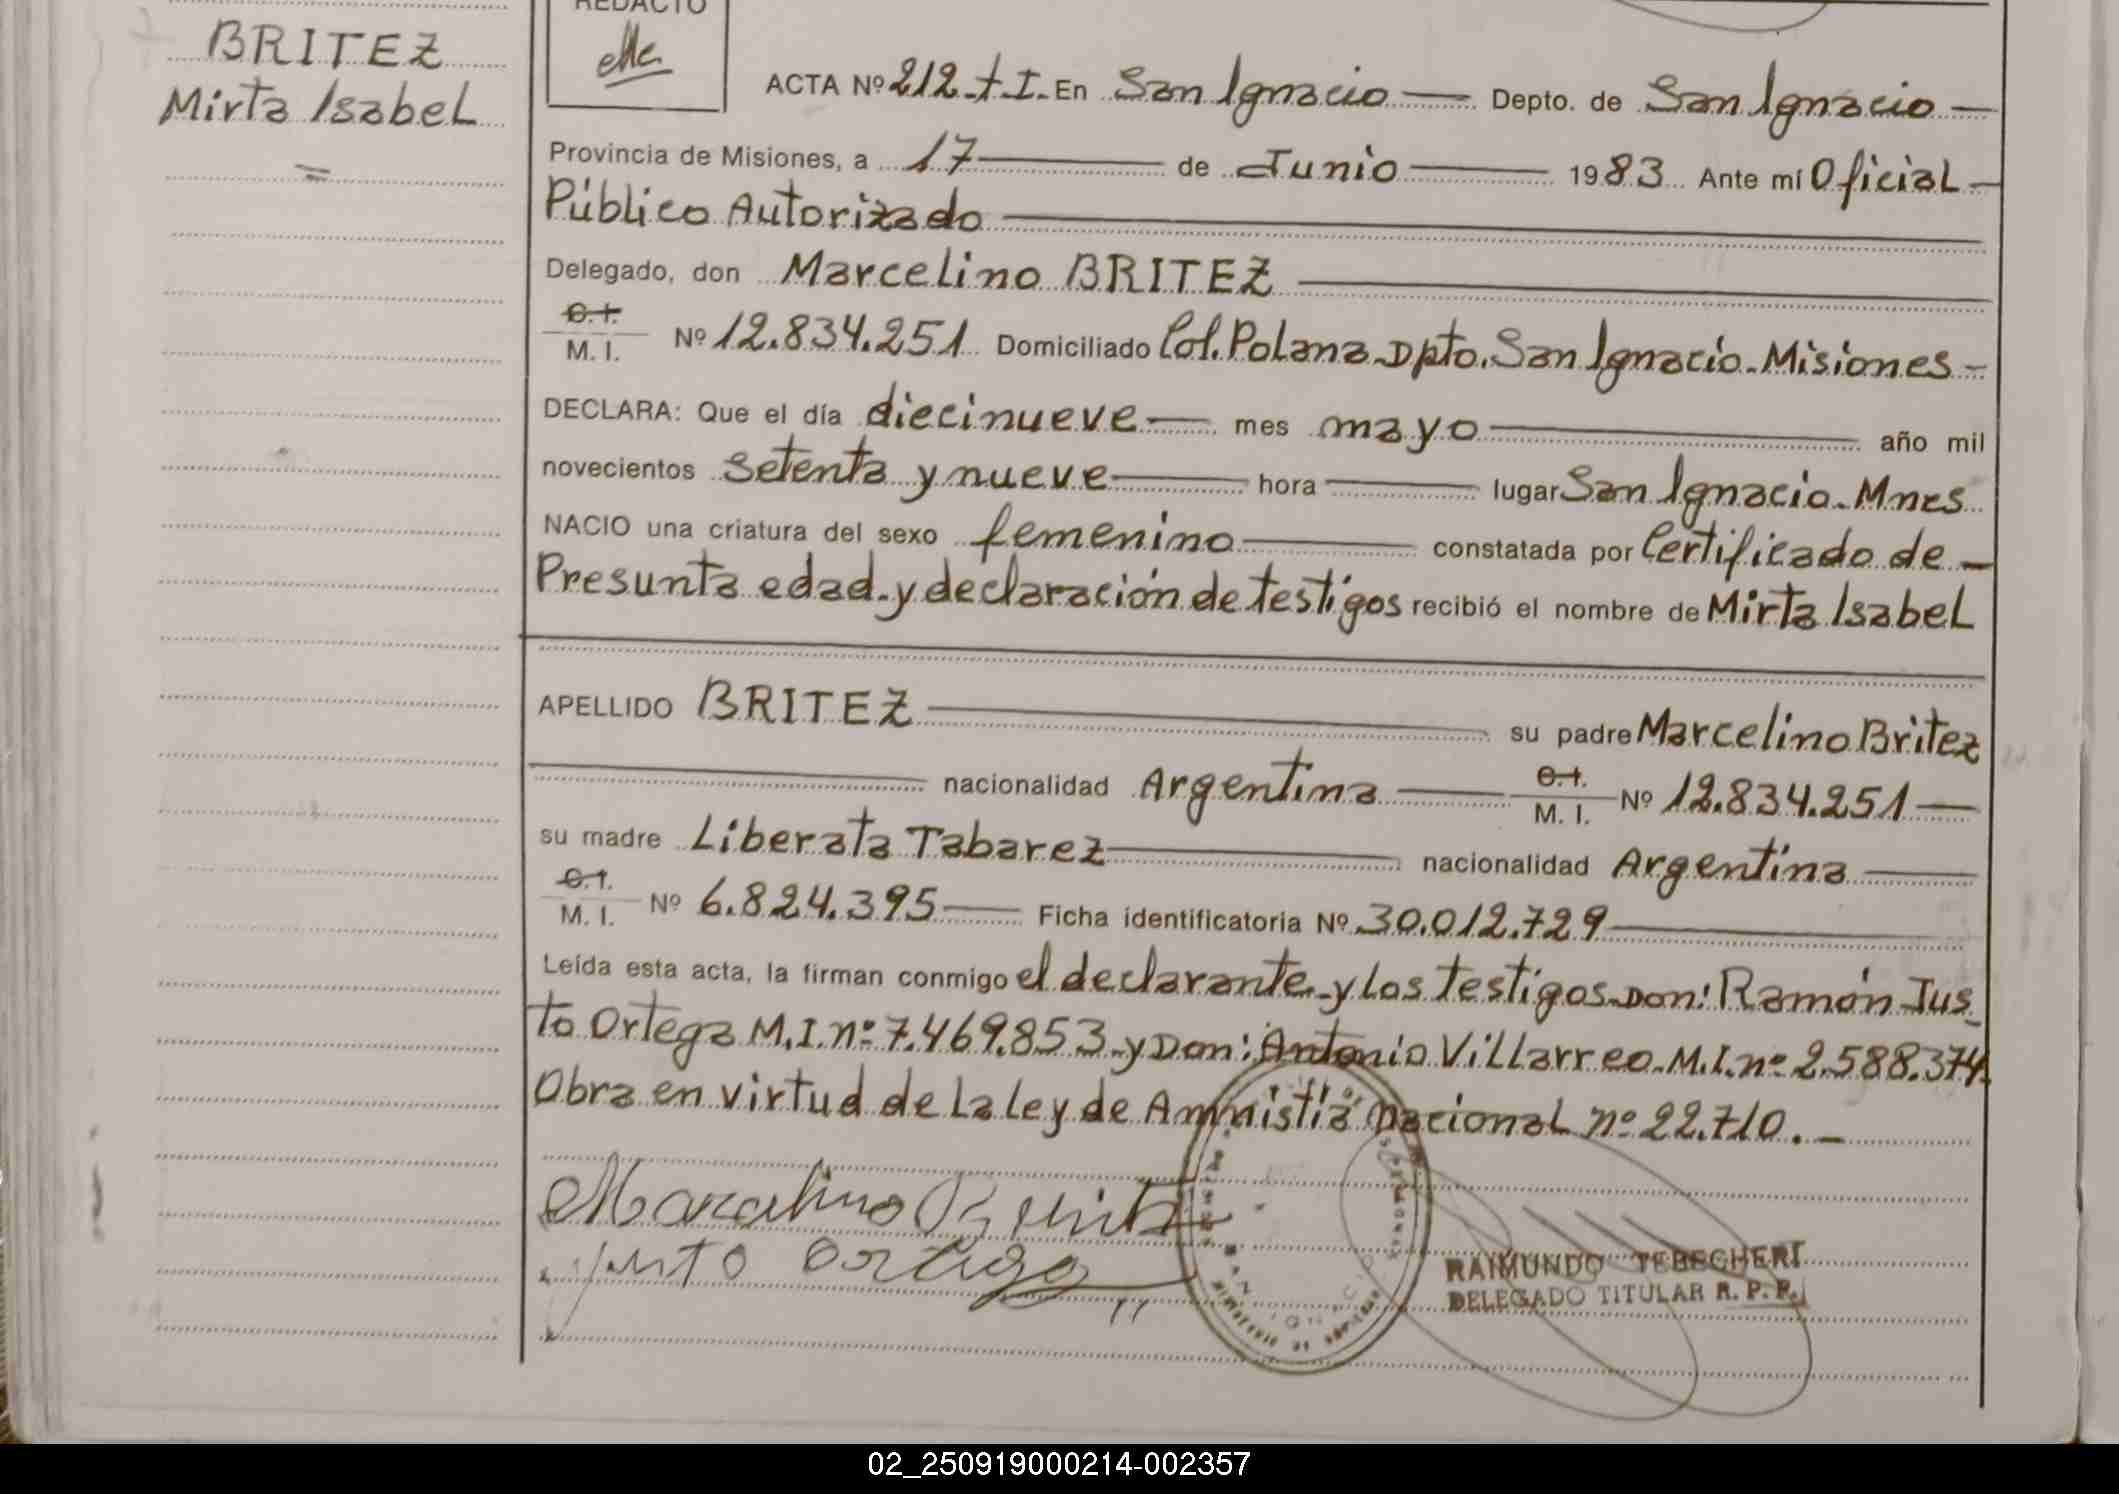 BRITEZ
Mirta Isabel
REDACTO
ACTA Nº 212-t-I- En San Ignacio — Depto. de San Ignacio —
Provincia de Misiones, a 17 — de Junio — 1983 Ante mí Oficial —
Público Autorizado —
Delegado, don Marcelino BRITEZ —
C.I.
M. I. Nº 12.834.251 Domiciliado Col. Polana-Dpto. San Ignacio-Misiones-
DECLARA: Que el día diecinueve — mes mayo — año mil
novecientos setenta y nueve — hora — lugar San Ignacio-Mnes
NACIO una criatura del sexo femenino — constatada por Certificado de —
Presunta edad-y declaración de testigos recibió el nombre de Mirta Isabel
APELLIDO BRITEZ — su padre Marcelino Britez
— nacionalidad Argentina — C.I.
M. I. Nº 12.834.251 —
su madre Liberata Tabarez — nacionalidad Argentina —
C.I.
M. I. Nº 6.824.395 — Ficha identificatoria Nº 30.012.729 —
Leída esta acta, la firman conmigo el declarante-y los testigos-Don: Ramón Jus_
to Ortega M.I.nº 7.469.853-y Don: Antonio Villarreo-M.I.nº 2.588.374.
Obra en virtud de la ley de Amnistía nacional nº 22.710.-
Marcelino Britez
Justo Ortega
RAIMUNDO TEBECHERI
DELEGADO TITULAR R. P. P.
02_250919000214-002357